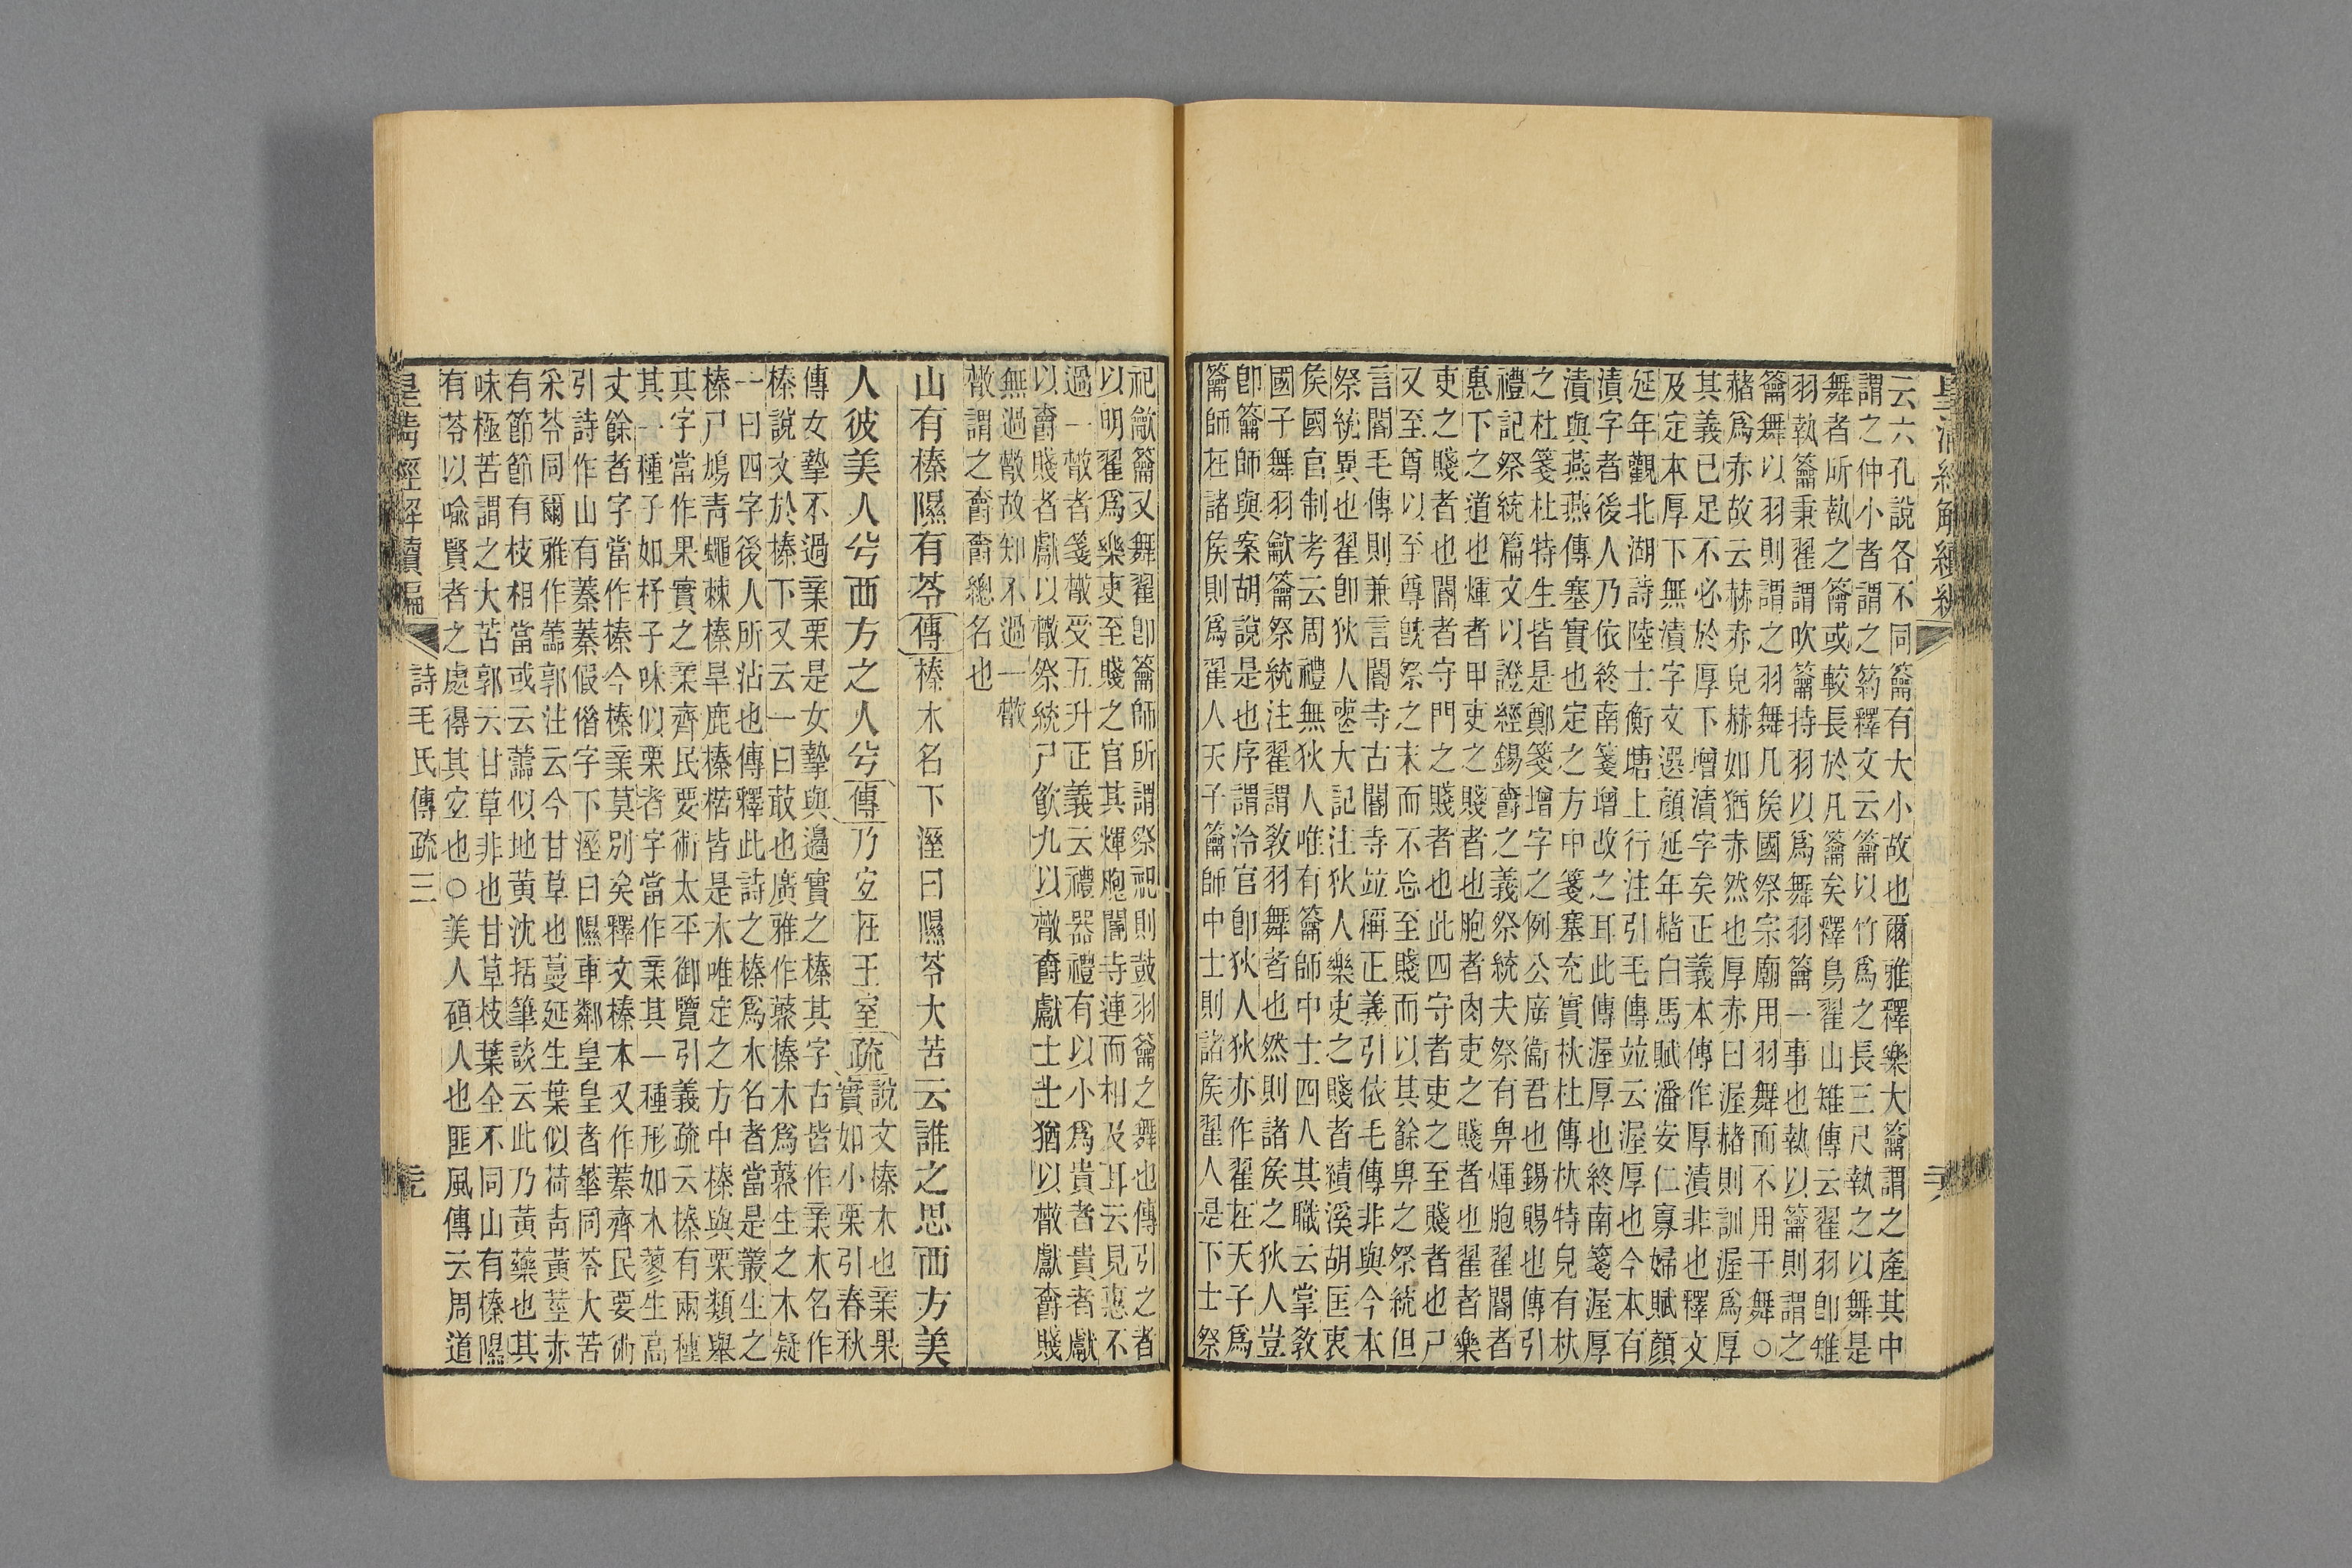 皇清經解續編
云六孔說各不同籥有大小故也爾雅釋樂大籥謂之產其中
謂之仲小者謂之箹釋文云籥以竹爲之長三尺執之以舞是
舞者所執之籥或較長於凡籥矣釋鳥翟山雉傳云翟羽卽雉
羽執籥秉翟謂吹籥持羽以爲舞羽籥一事也執以籥則謂之
籥舞以羽則謂之羽舞凡矦國祭宗廟用羽舞而不用干舞○
赭爲赤故云赫赤皃赫如猶赤然也厚赤曰渥赭則訓渥爲厚
其義已足不必於厚下增漬字矣正義本傳作厚漬非也釋文
及定本厚下無漬字文選顏延年赭白馬賦潘安仁寡婦賦顏
延年觀北湖詩陸士衡塘上行注引毛傳竝云渥厚也今本有
漬字者後人乃依終南箋增改之耳此傳渥厚也終南箋渥厚
漬與燕燕傳塞實也定之方中箋塞充實杕杜傳杕特皃有杕
之杜箋杜特生皆是鄭箋增字之例公庿衞君也錫賜也傳引
禮記祭統篇文以證經錫爵之義祭統夫祭有畀煇胞翟閽者
惠下之道也煇者甲吏之賤者也胞者肉吏之賤者也翟者樂
吏之賤者也閽者守門之賤者也此四守者吏之至賤者也尸
又至尊以至尊旣祭之末而不忘至賤而以其餘畀之祭統但
言閽毛傳則兼言閽寺古閽寺竝稱正義引依毛傳非與今本
祭統異也翟卽狄人喪大記注狄人樂吏之賤者績溪胡匡衷
矦國官制考云周禮無狄人唯有籥師中士四人其職云掌敎
國子舞羽龡籥祭統注翟謂敎羽舞者也然則諸矦之狄人豈
卽籥師與案胡說是也序謂泠官卽狄人狄亦作翟在天子爲
籥師在諸矦則爲翟人天子籥師中士則諸矦翟人是下士祭
祀龡籥又舞翟卽籥師所謂祭祀則鼓羽籥之舞也傳引之者
以明翟爲樂吏至賤之官其煇胞閽寺連而相及耳云見惠不
過一散者箋散受五升正義云禮器禮有以小爲貴者貴者獻
以爵賤者獻以散祭統尸飮九以散爵獻士士猶以散獻爵賤
無過散故知不過一散
散謂之爵爵總名也
山有榛隰有苓傳榛木名下溼曰隰苓大苦云誰之思西方美
人彼美人兮西方之人兮傳乃宐在王室疏說文榛木也業果
實如小栗引春秋
傳女摯不過業栗是女摯與邉實之榛其字古皆作業木名作
榛說文於榛下又云一曰菆也廣雅作藂榛木爲藂生之木疑
一曰四字後人所沾也傳釋此詩之榛爲木名者當是叢生之
榛尸鳩靑蠅棘榛旱鹿榛楛皆是木唯定之方中榛與栗類舉
其字當作果實之業齊民要術太平御覽引義疏云榛有兩種
其一種子如杼子味似栗者字當作業其一種形如木蓼生高
丈餘者字當作榛今榛業莫別矣釋文榛本又作蓁齊民要術
引詩作山有蓁蓁假僭字下溼曰隰車鄰皇皇者華同苓大苦
采苓同爾雅作蘦郭注云今甘草也蔓延生葉似荷靑黃莖赤
有節節有枝相當或云蘦似地黃沈括筆談云此乃黃藥也其
味極苦謂之大苦郭云甘草非也甘草枝葉全不同山有榛隰
有苓以喩賢者之處得其宐也○美人碩人也匪風傳云周道
皇淸經解續編 詩毛氏傳疏三